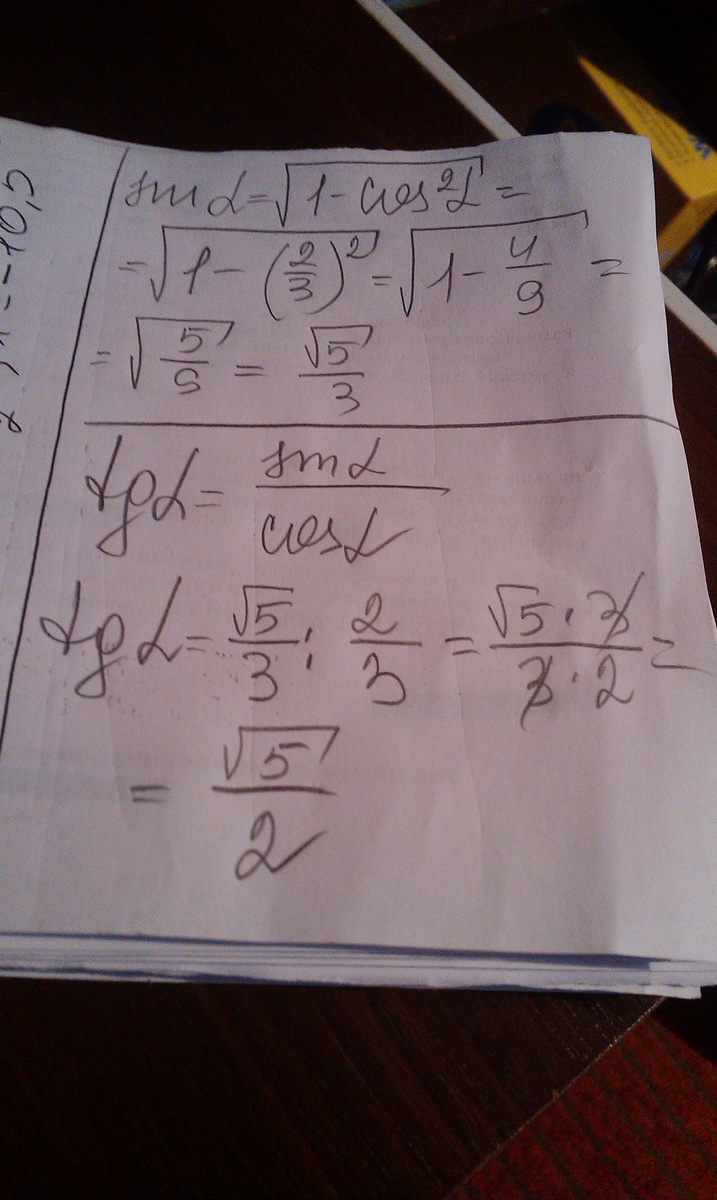 sin α = √(1 - cos²α) =
= √(1 - (2/3)²) = √(1 - 4/9) =
= √(5/9) = √5/3
tg α = sin α / cos α
tg α = √5/3 : 2/3 = √5 · 3 / 3 · 2 =
= √5/2